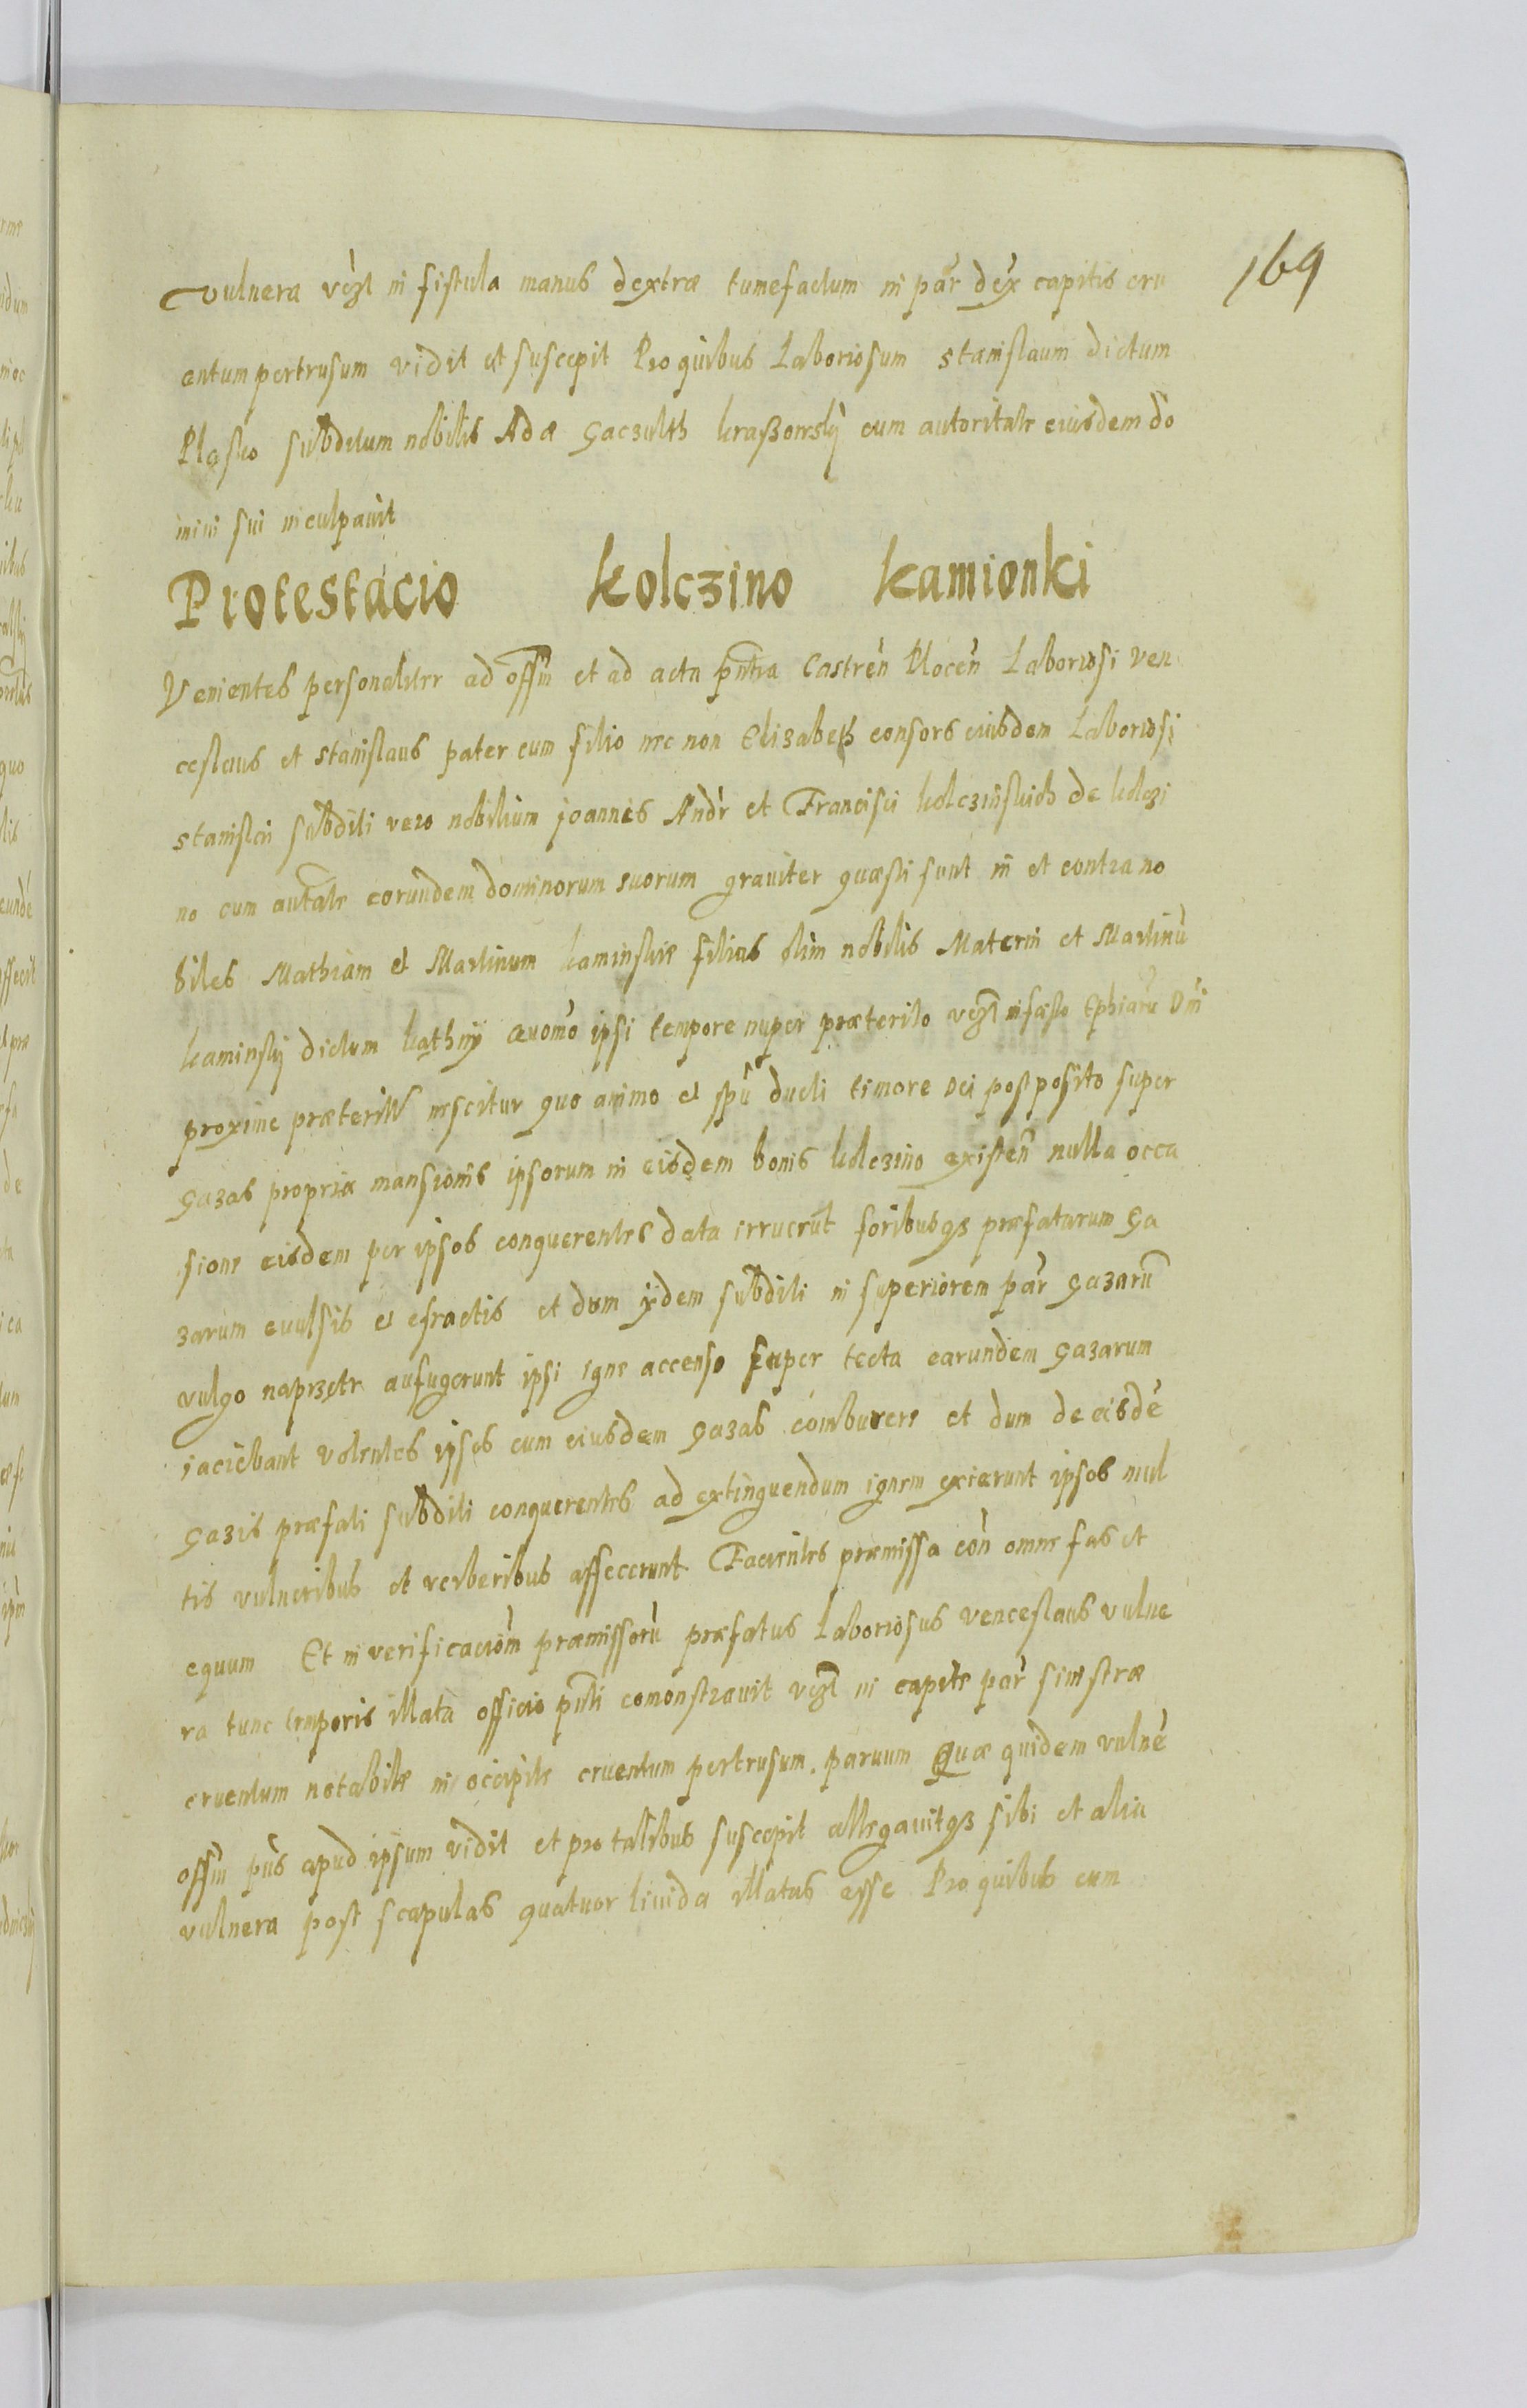 169
vulnera vczl in fistula manus dextræ tumefactum in par dex capitis cru
entum pertrusum vidit et suscepit Pro quibus Laboriosum stanislaum dictum
Plasko subditum nobilis Adæ gaczulth kraßowskÿ cum autoritate eiusdem do
mini sui inculpauit
Protestacio kolczino kamionki
Venientes personaliter ad offm et ad acta pntia Castren Plocen Laboriosi ven
ceslaus et stanislaus pater cum filio nec non Elizabeth consors eiusdem Laboriosi
stanislai subditi vero nobilium joannis Andr et Francisci kolczinskich de kolczi
no cum autate eorundem dominorum suorum grauiter quæsti sunt in et contra no
biles Mathiam et Martinum kaminskie filios olim nobilis Materni et Martinu
kaminskÿ dictum kathnÿ quomo ipsi tempore nuper præterito vczl in fæsto Ephiaru Dni
proxime præteriti nescitur quo animo et spu ducti timore Dei postposito super
gazas propriæ mansionis ipsorum in eisdem bonis kolczino existen nulla occa
sione eisdem per ipsos conquerentes data irruerut foribusqz præfatarum ga
zarum euulsis et efractis et dum ÿdem subditi in superiorem par gazaru
vulgo naprzetr aufugerunt ipsi igne accenso super tecta earundem gazarum
jaciebant volentes ipsos cum eiusdem gazas comburere et dum de eisde
gazis præfati subditi conquerentes ad extinguendum ignem exierunt ipsos mul
tis vulneribus et verberibus affecerunt Facientes præmissa con omne fas et
equum Et in verificaciom præmissoru præfatus Laboriosus venceslaus vulne
ra tunc temporis illata officio pnti comonstrauit vczl in capite par sinistræ
cruentum notabile in occipite cruentum pertrusum paruum Quæ quidem vulne
offm pns apud ipsum vidit et pro talibus suscepit allegauitqz sibi et alia
vulnera post scapulas quatuor liuida illatas esse Pro quibus cum